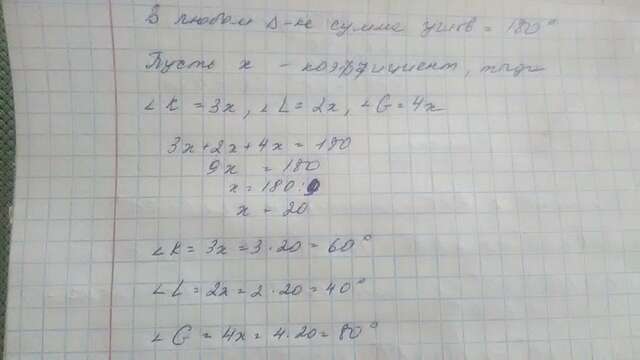 В любом Δ-ке сумма углов = 180°
Пусть x - коэффициент, тогда
∠K = 3x, ∠L = 2x, ∠G = 4x
3x+2x+4x = 180
9x = 180
x = 180:9
x = 20
∠K = 3x = 3·20 = 60°
∠L = 2x = 2·20 = 40°
∠G = 4x = 4·20 = 80°